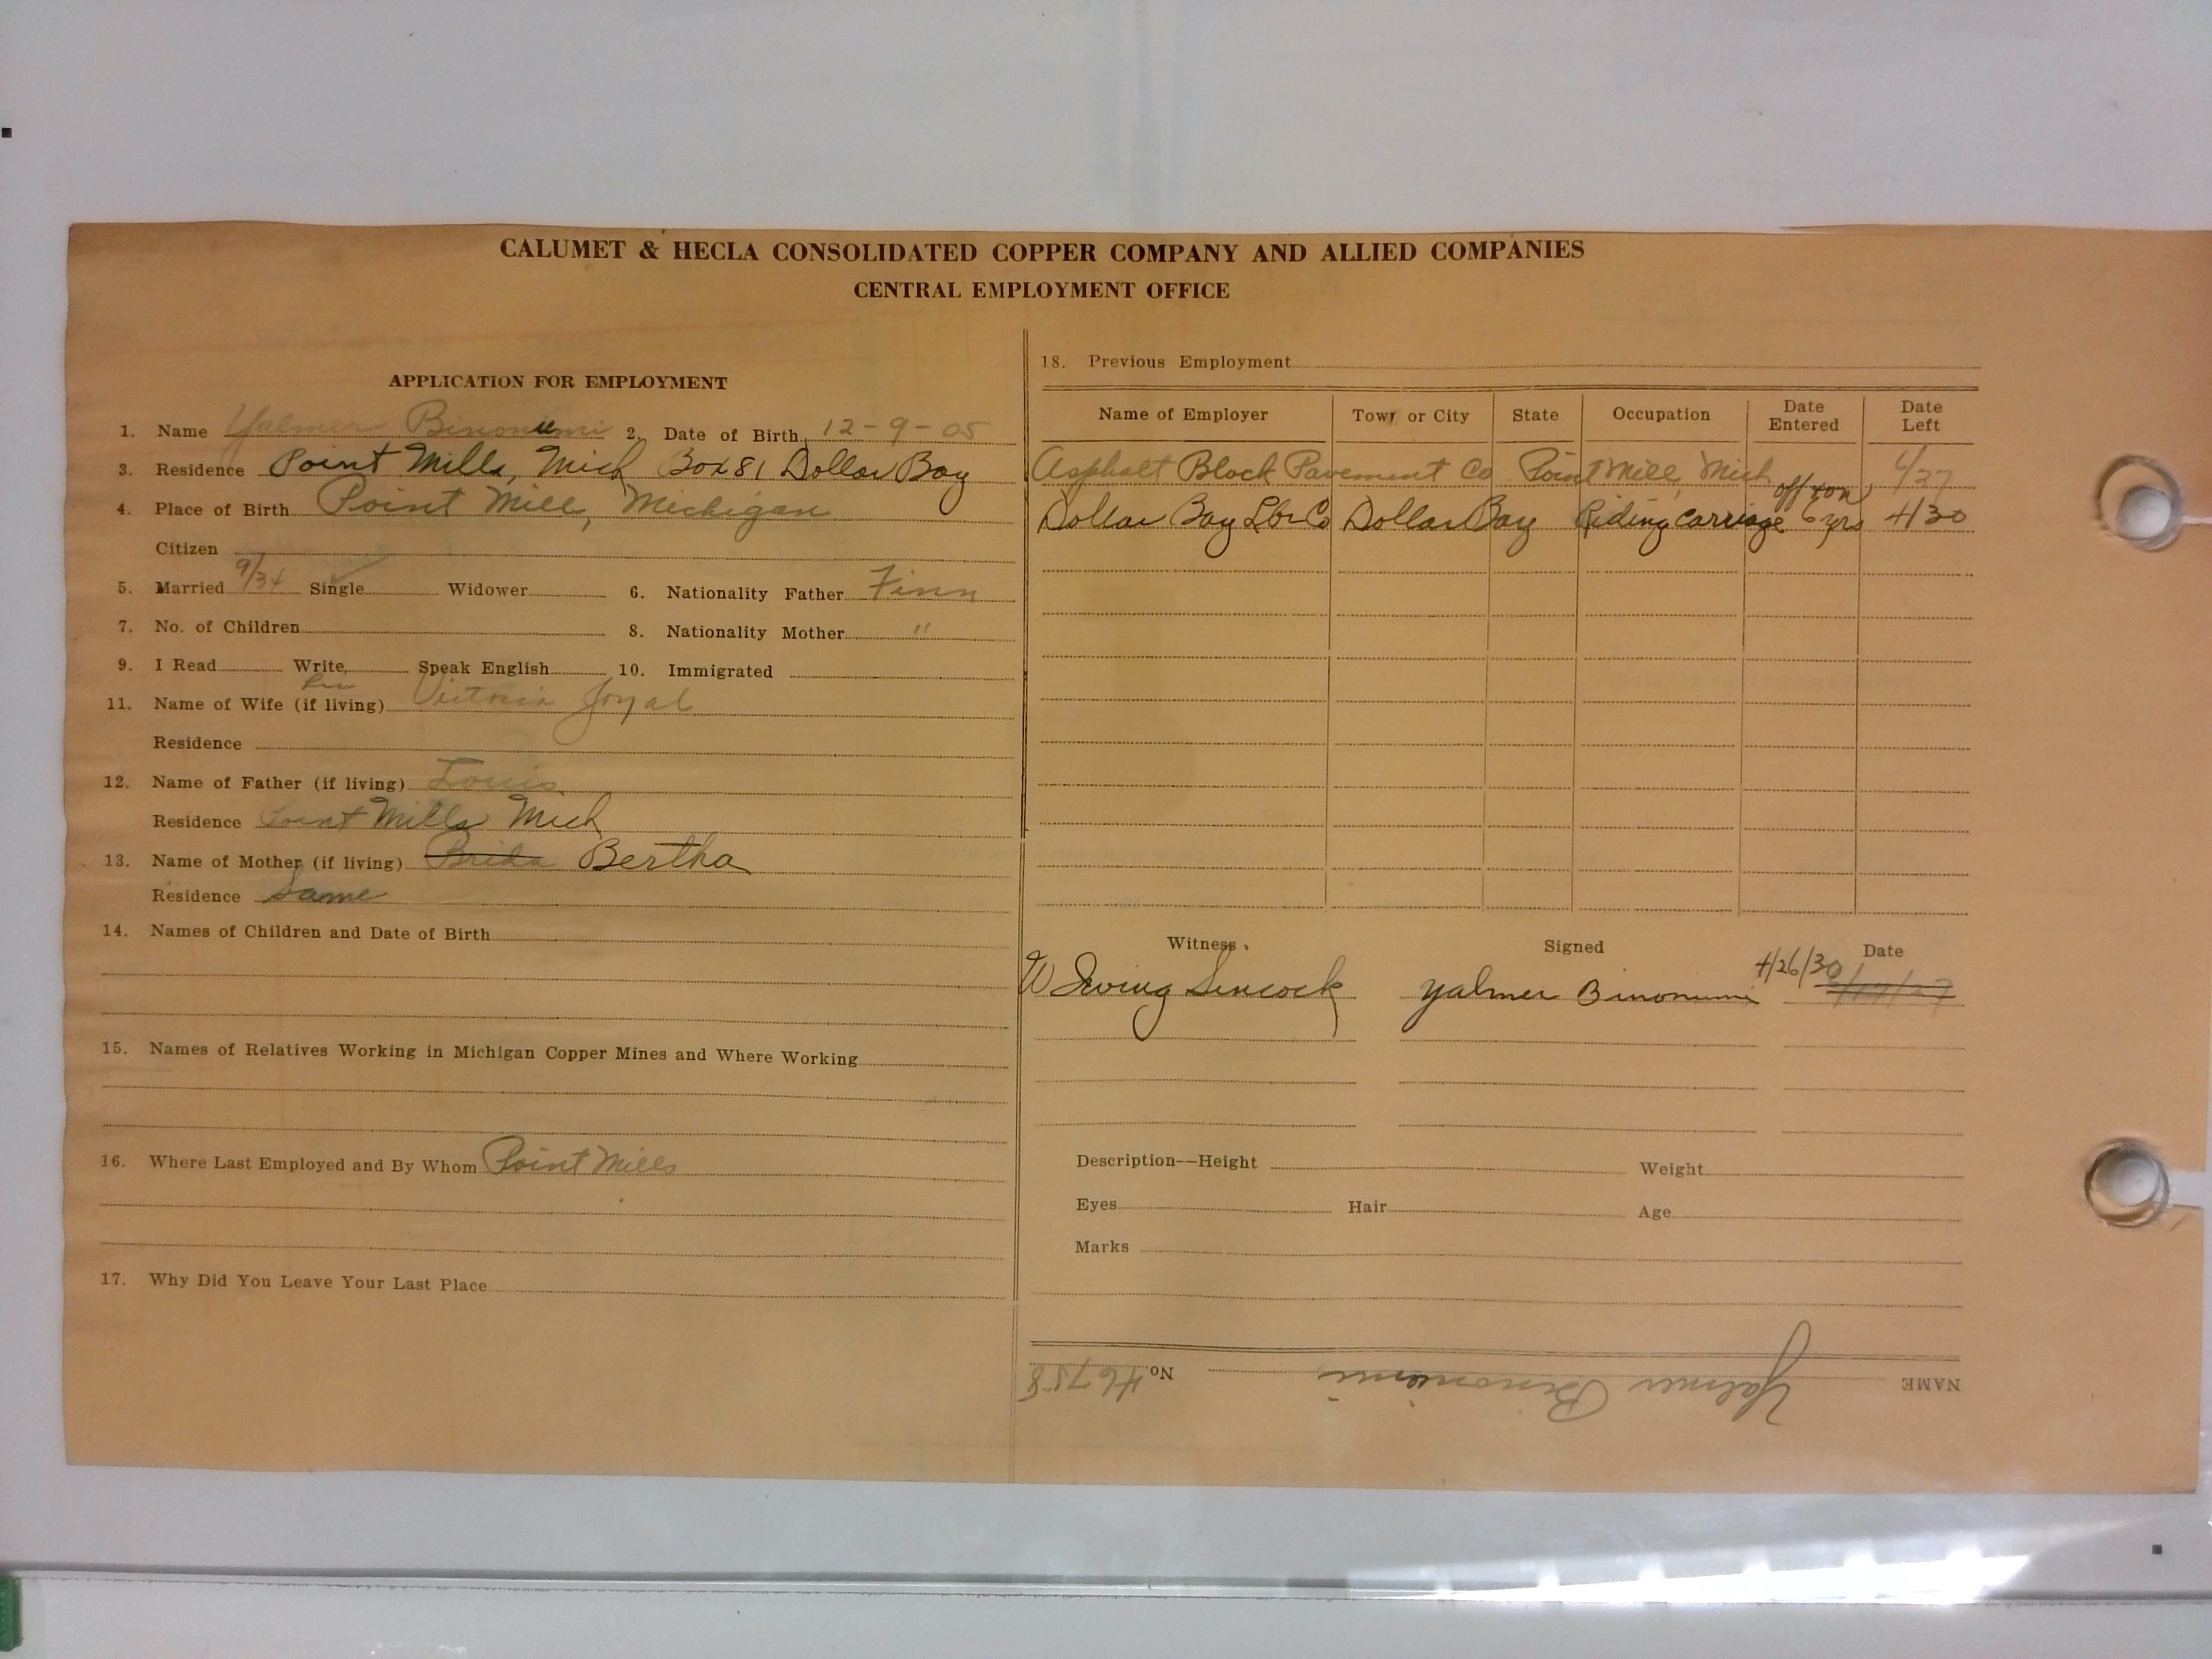 CALUMET & HECLA CONSOLIDATED COPPER COMPANY AND ALLIED COMPANIES
CENTRAL EMPLOYMENT OFFICE
APPLICATION FOR EMPLOYMENT
1. Name Yalmer Binoniemi 2. Date of Birth 12-9-05
3. Residence Point Mills, Mich Box 81 Dollar Bay
4. Place of Birth Point Mill, Michigan
Citizen
5. Married 9/34 Single ✓ Widower 6. Nationality Father Finn
7. No. of Children 8. Nationality Mother "
9. I Read Write Speak English 10. Immigrated
11. Name of Wife (if living) Victoria Joyal
Residence
12. Name of Father (if living) Louis
Residence Point Mills Mich
13. Name of Mother (if living) Brida Bertha
Residence Same
14. Names of Children and Date of Birth
15. Names of Relatives Working in Michigan Copper Mines and Where Working
16. Where Last Employed and By Whom Point Mills
17. Why Did You Leave Your Last Place
18. Previous Employment
Name of Employer Town or City State Occupation Date Entered Date Left
Asphalt Block Pavement Co Point Mill, Mich 6/27
Dollar Bay Lbr Co Dollar Bay Riding carriage off & on 6 yrs 4/30
Witness Signed Date
W Irving Sincock Yalmer Binoniemi 4/26/30
Description—Height Weight
Eyes Hair Age
Marks
NAME Yalmer Binoniemi No. 46758